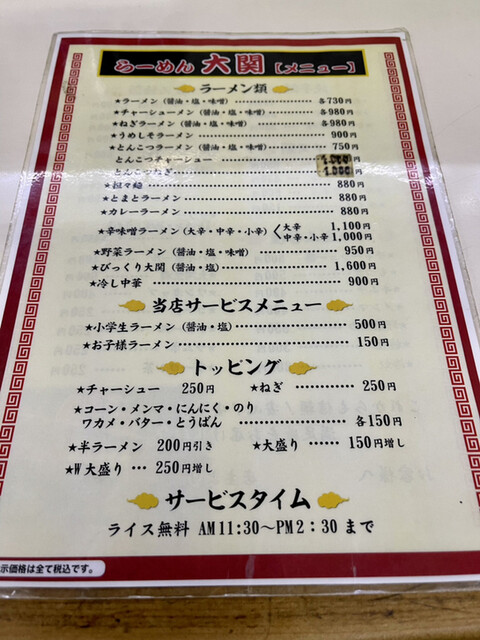 らーめん 大関 【メニュー】
ラーメン類
★ラーメン（醤油・塩・味噌）………………各730円
★チャーシューメン（醤油・塩・味噌）………各980円
★ねぎラーメン（醤油・塩・味噌）……………各980円
★うめしそラーメン………………………………900円
★とんこつラーメン（醤油・塩・味噌）…………750円
とんこつチャーシュー……………………1,000円
とんこつねぎ……………………………1,000円
★担々麺……………………………………………880円
★とまとラーメン…………………………………880円
★カレーラーメン…………………………………880円
★辛味噌ラーメン（大辛・中辛・小辛）〈大辛 1,100円
中辛・小辛 1,000円
★野菜ラーメン（醤油・塩・味噌）………………950円
★びっくり大関（醤油・塩）……………………1,600円
★冷し中華…………………………………………900円
当店サービスメニュー
★小学生ラーメン（醤油・塩）……………………500円
★お子様ラーメン…………………………………150円
トッピング
★チャーシュー 250円 ★ねぎ ……… 250円
★コーン・メンマ・にんにく・のり
ワカメ・バター・とうばん ……………各150円
★半ラーメン 200円引き ★大盛り … 150円増し
★W大盛り … 250円増し
サービスタイム
ライス無料 AM11:30〜PM2:30 まで
示価格は全て税込です。